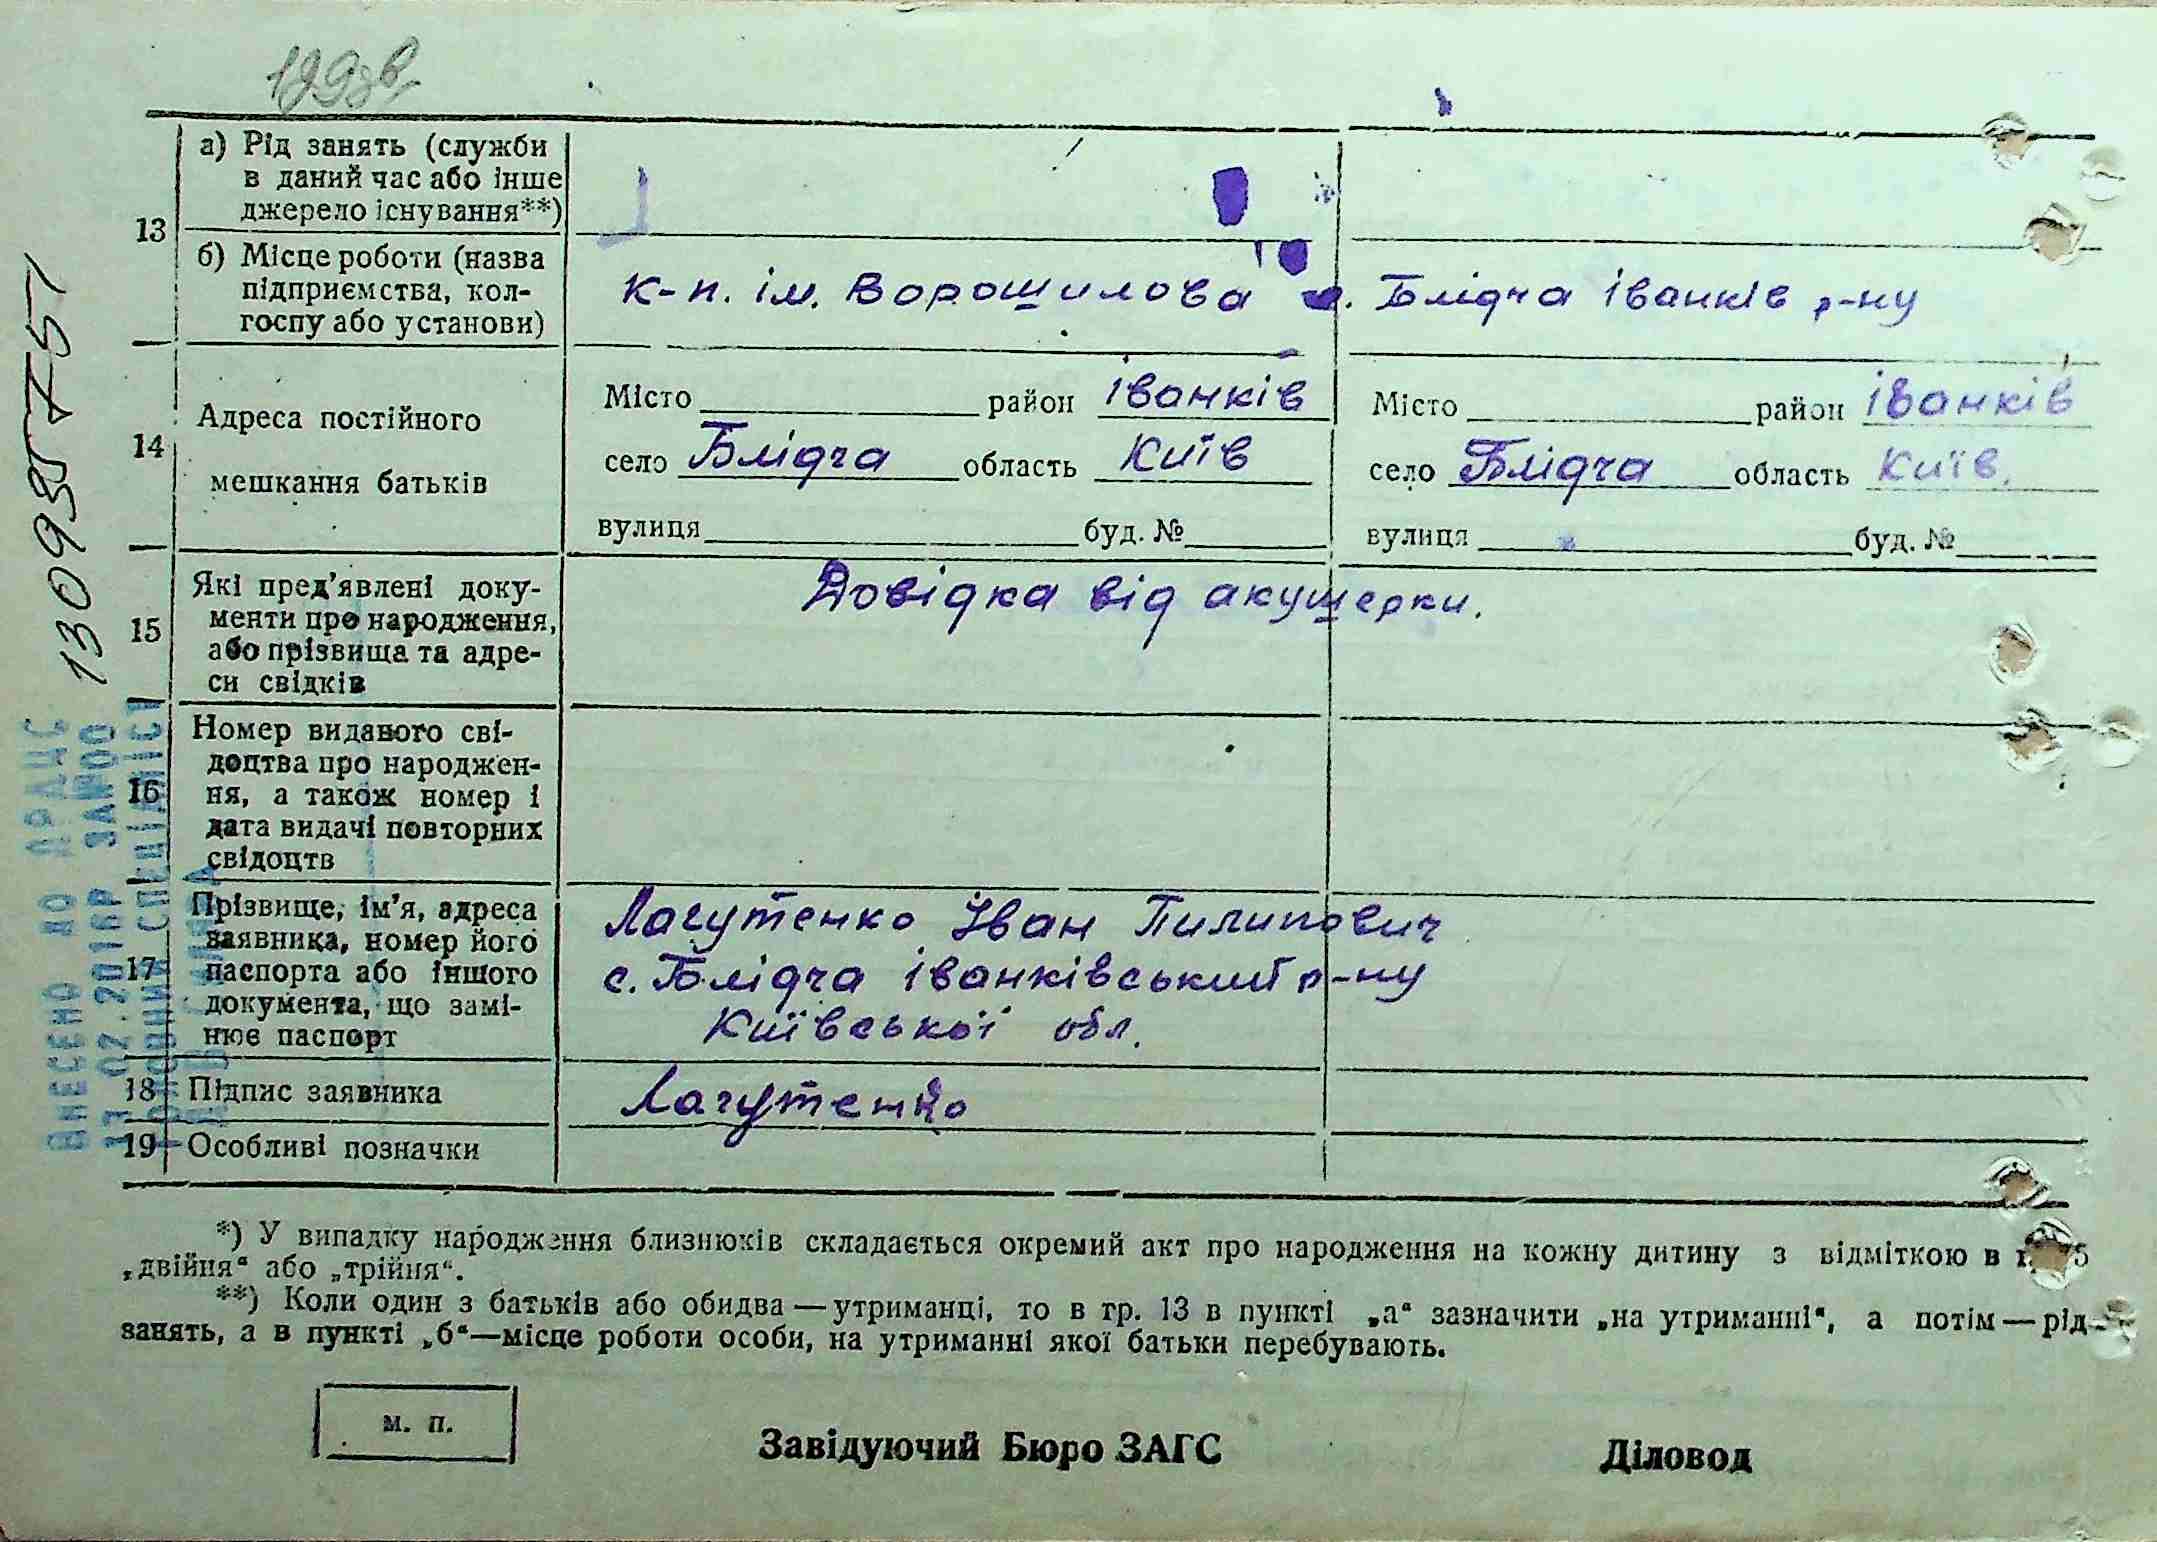 199зв
13 а) Рід занять (служби
в даний час або інше
джерело існування**)
б) Місце роботи (назва
підприємства, кол-
госпу або установи)
к-п. ім. Ворошилова с. Блідча Іванків р-ну
14 Адреса постійного
мешкання батьків
Місто район Іванків
село Блідча область Київ
вулиця буд. №
Місто район Іванків
село Блідча область Київ.
вулиця буд. №
15 Які пред'явлені доку-
менти про народження,
або прізвища та адре-
си свідків
Довідка від акушерки.
16 Номер виданого сві-
доцтва про народжен-
ня, а також номер і
дата видачі повторних
свідоцтв
17 Прізвище, ім'я, адреса
заявника, номер його
паспорта або іншого
документа, що замі-
нює паспорт
Лагутенко Іван Пилипович
с. Блідча Іванківський р-ну
Київської обл.
18 Підпис заявника
Лагутенко
19 Особливі позначки
*) У випадку народження близнюків складається окремий акт про народження на кожну дитину з відміткою в 5
„двійня“ або „трійня“.
**) Коли один з батьків або обидва — утриманці, то в гр. 13 в пункті „а“ зазначити „на утриманні“, а потім — рід
занять, а в пункті „б“—місце роботи особи, на утриманні якої батьки перебувають.
м. п.
Завідуючий Бюро ЗАГС
Діловод
ВНЕСЕНО ДО ДРАЦС